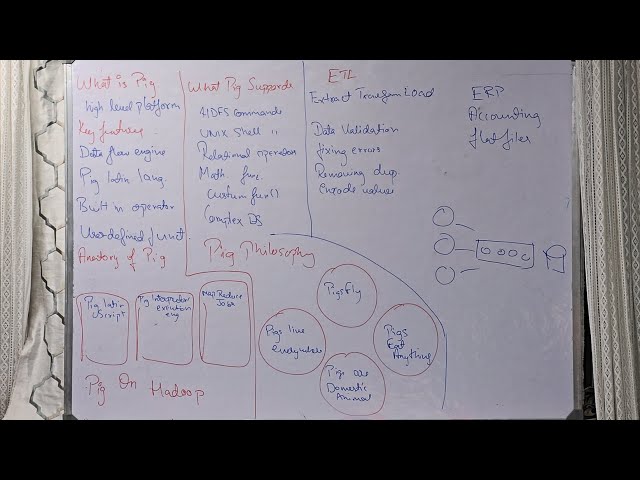 What is Pig
high level platform
Key feature
Data flow engine
Pig latin lang.
Built in operator
User defined funct.
Anatomy of Pig
Pig latin
Script
Pig Interpreter
execution
eng
Map Reduce
Jobs
Pig On Hadoop
What Pig Supports
HDFS commands
UNIX Shell "
Relational operator
Math func.
Custom func()
Complex DS
Pig Philosophy
Pigs fly
Pigs live
everywhere
Pigs
Eat
Anything
Pigs are
Domestic
Animal
ETL
Extract Transform Load
Data Validation
fixing errors
Removing dup.
Encode values
ERP
Accounting
flat files